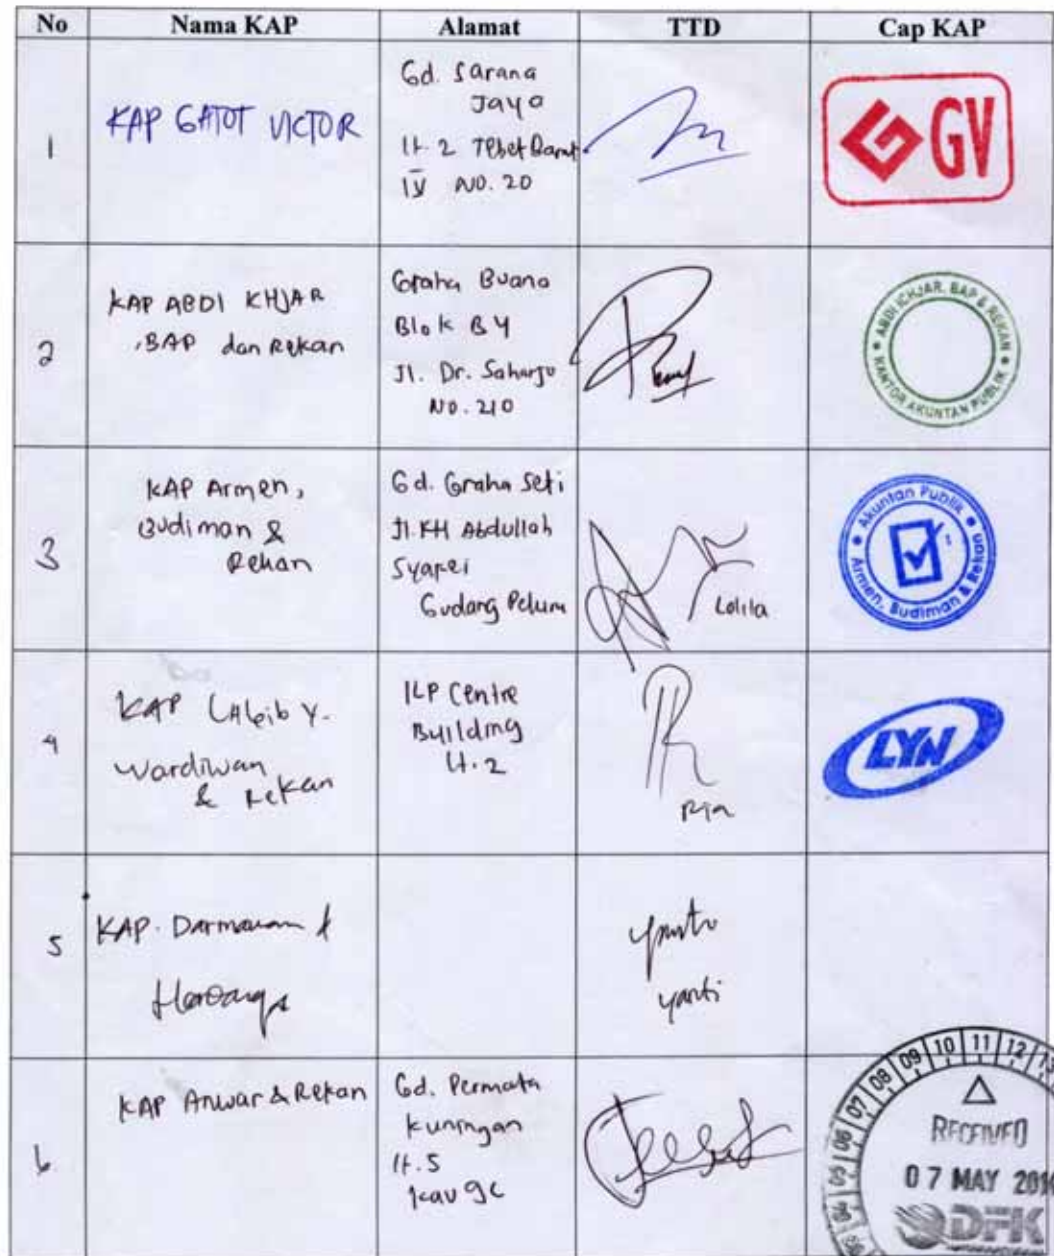 No Nama KAP Alamat TTD Cap KAP
1
KAP GATOT VICTOR
Gd. Sarana
Jaya
lt. 2 Tebet Barat
IV NO. 20
GV
2
KAP ABDI KHJAR
,BAP dan Rekan
Graha Buana
Blok B4
Jl. Dr. Saharjo
NO. 210
ABDI ICHJAR, BAP & REKAN
KANTOR AKUNTAN PUBLIK
3
KAP Armen,
Budiman &
Rekan
Gd. Graha Seti
Jl. KH Abdullah
Syafei
Gudang Peluru
Lolila
Akuntan Publik
Armen, Budiman & Rekan
4
KAP LAbib Y.
Wardiwan
& Rekan
ILP Centre
Building
Lt. 2
Ria
LYN
5
KAP. Darmawan &
yanti
6
KAP Anwar & Rekan
Gd. Permata
Kuningan
lt. 5
Kav 9C
04 05 06 07 08 09 10 11 12 13
RECEIVED
07 MAY 201
DFK